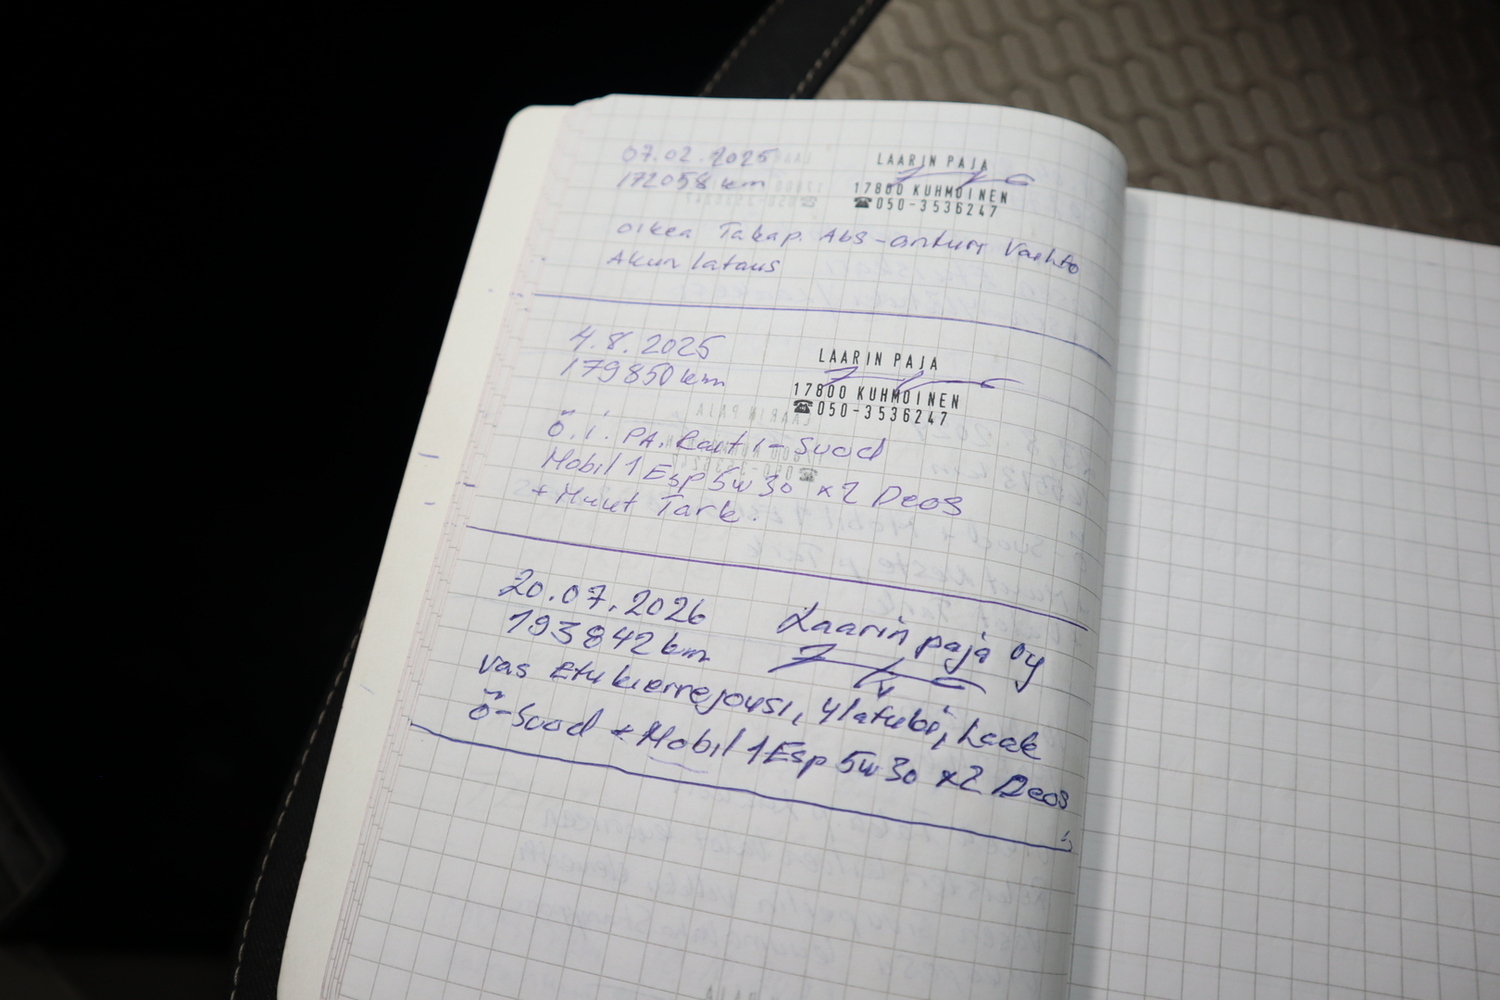 07.02.2025
172058 km
LAARIN PAJA
17800 KUHMOINEN
☎050-3536247
oikea Takap. Abs-anturi Vaihto
Akun lataus
4.8.2025
179850 km
LAARIN PAJA
17800 KUHMOINEN
☎050-3536247
ö.i. PA. Rait i-Suod
Mobil 1 Esp 5w30 x2 Deos
+ Muut Tark.
20.07.2026
193842 km
Laarin paja Oy
vas Etu kierrejousi, ylätuki, Laak
ö-Suod + Mobil 1 Esp 5w30 x2 Deos